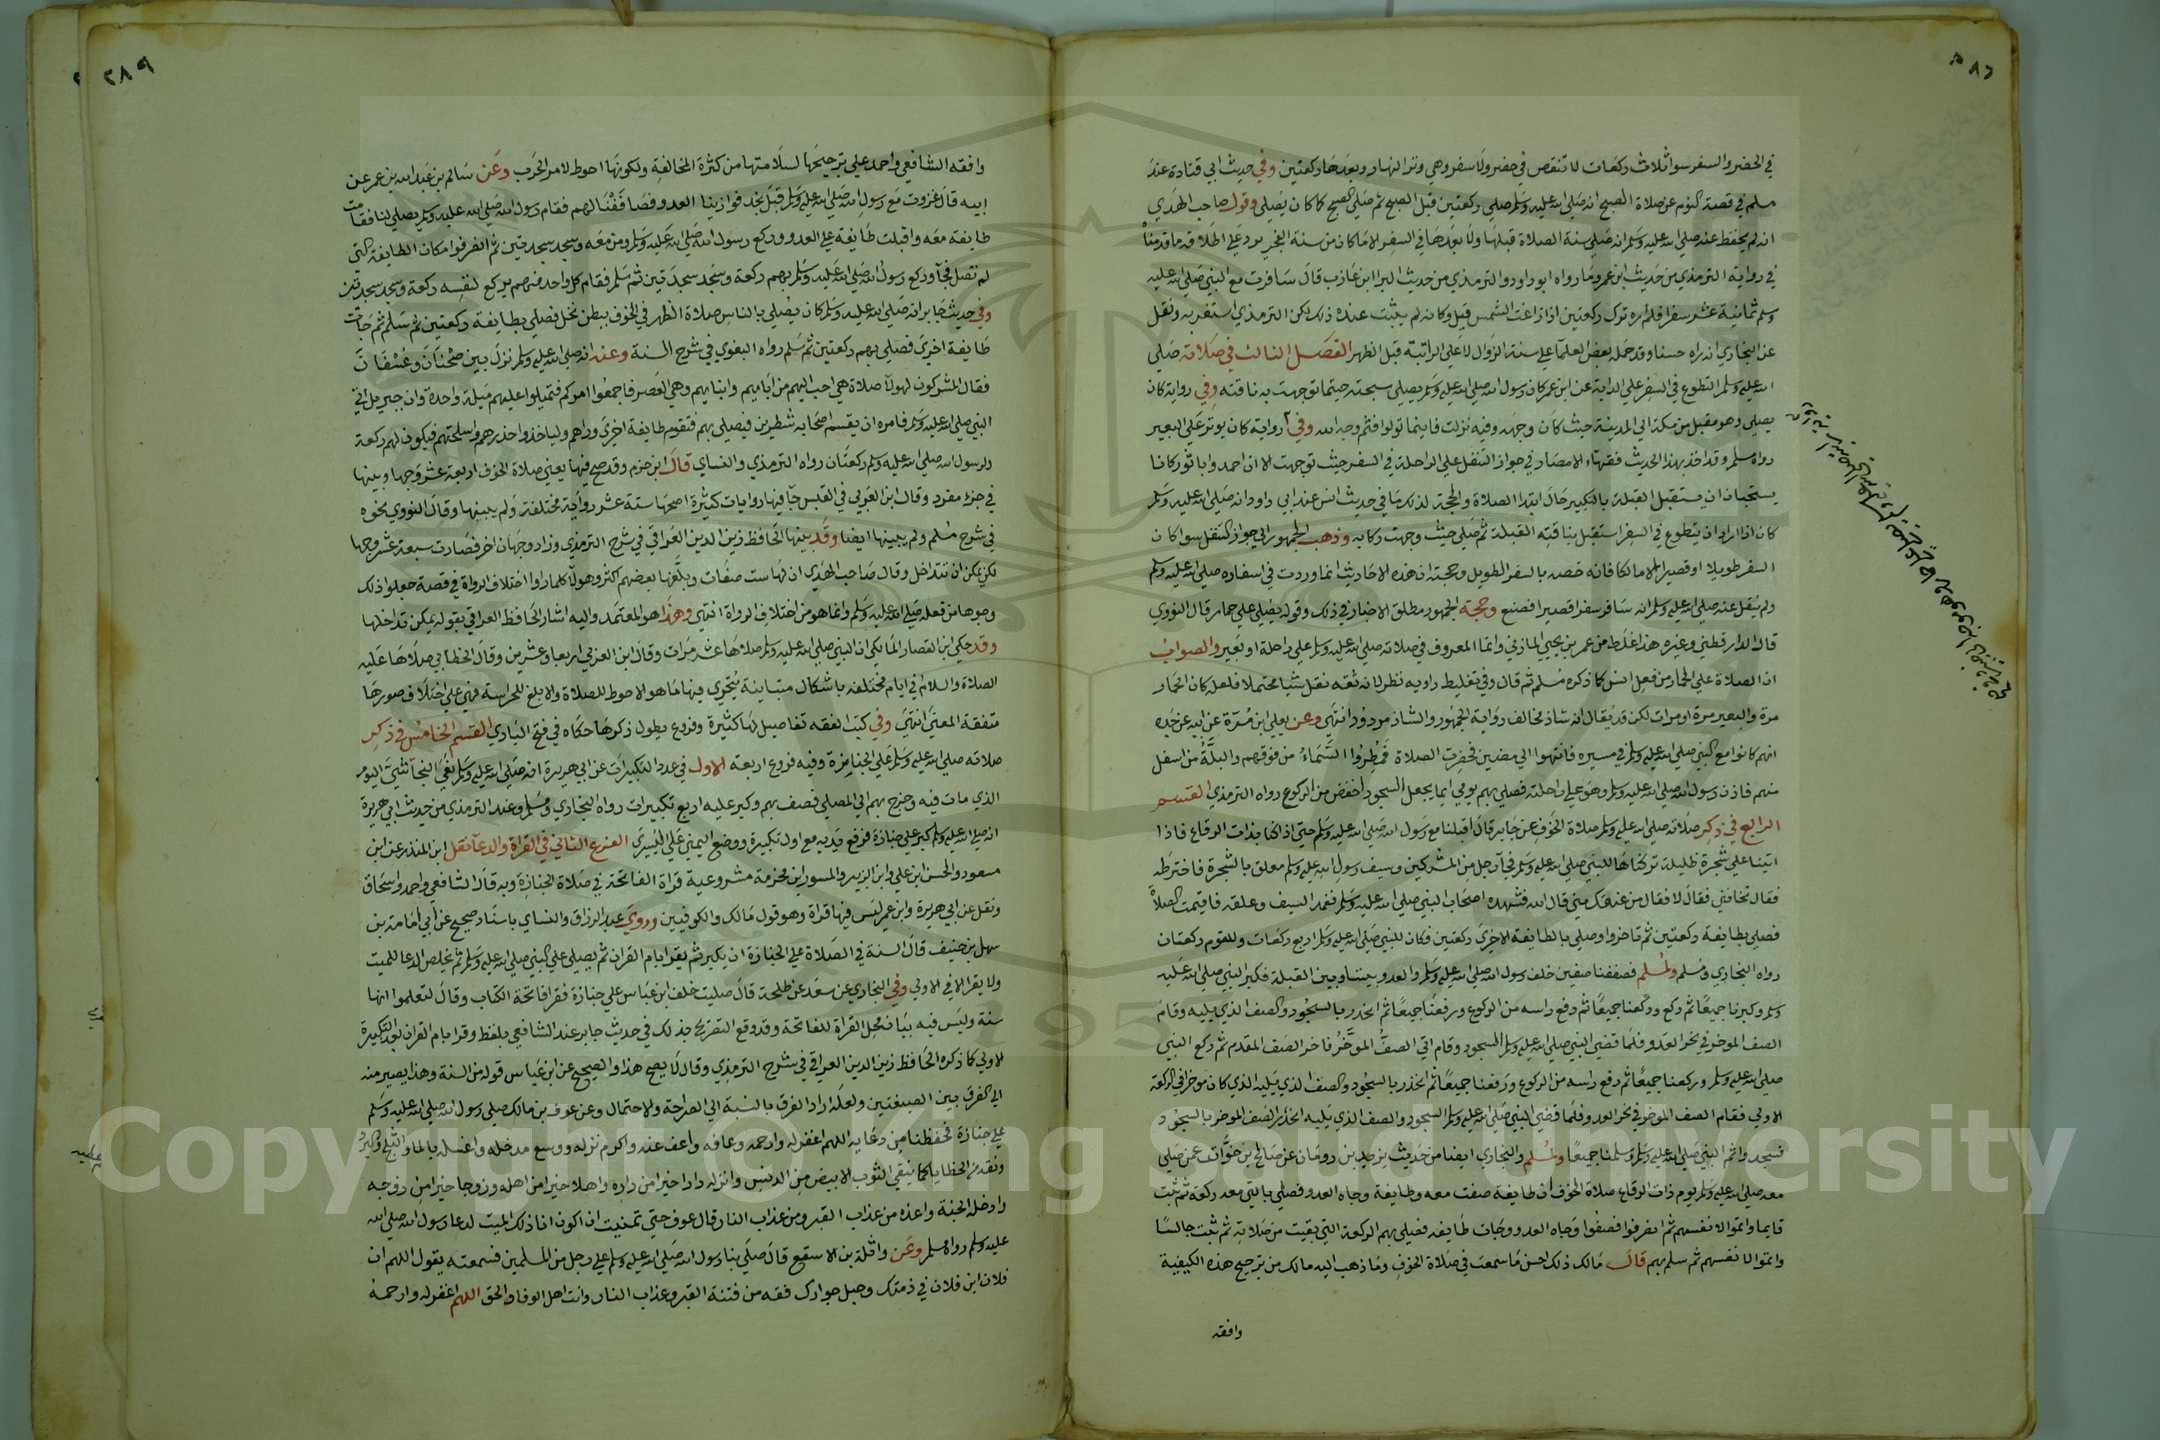 في الحضر والسفر سوا ثلاث ركعات لا تنقص في حضر ولا سفر وهي وتر النهار وبعدها ركعتين وفي حديث ابي قتادة عند
مسلم في قصة النوم عن صلاة الصبح انه صلي الله عليه وسلم صلي ركعتين قبل الصبح ثم صلي الصبح كما كان يصلي وقول صاحب الهدي
انه لم يحفظ عنه صلي الله عليه وسلم انه صلي سنة الصلاة قبلها ولا بعدها في السفر الا ما كان من سنة الفجر يرد علي اطلاقه ما قدمناه
في رواية الترمذي من حديث ابن عمر وما رواه ابو داود والترمذي من حديث البرا ابن عازب قال سافرت مع النبي صلي الله عليه
وسلم ثمانية عشر سفرا فلم اره ترك ركعتين اذا زاغت الشمس قبل وكانه لم يثبت عنده ذلك لكن الترمذي استغربه ونقل
عن البخاري انه راه حسنا وقد حمل بعض العلما علي سنة الزوال لا علي الراتبة قبل الظهر الفصل الثالث في صلاته صلي
الله عليه وسلم التطوع في السفر علي الدابة عن ابن عمر كان رسول الله صلي الله عليه وسلم يصلي سبحته حيثما توجهت به ناقته وفي رواية كان
يصلي وهو مقبل من مكة الي المدينة حيث كان وجهه وفيه نزلت فاينما تولوا فثم وجه الله وفي رواية كان يوتر علي البعير
رواه مسلم وقد اخذ بهذا الحديث فقهاء الامصار في جواز التنفل علي الراحلة في السفر حيث توجهت الا ان احمد وابا ثور كانا
يستحبان ان يستقبل القبلة بالتكبير حال ابتدا الصلاة والحجة لذلك ما في حديث انس عند ابي داود انه صلي الله عليه وسلم
كان اذا اراد ان يتطوع في السفر استقبل بناقته القبلة ثم صلي حيث وجهت ركابه وذهب الجمهور الي جواز التنفل سوا كان
السفر طويلا او قصيرا الا مالكا فانه خصه بالسفر الطويل وحجته ان هذه الاحاديث انما وردت في اسفاره صلي الله عليه وسلم
ولم ينقل عنه صلي الله عليه وسلم انه سافر سفرا قصيرا فصنع وحجة الجمهور مطلق الاخبار في ذلك وقوله يصلي علي حمار قال النووي
قال الدارقطني وغيره هذا غلط من عمر بن يحيي المازني وانما المعروف في صلاته صلي الله عليه وسلم علي راحلة او بعير والصواب
ان الصلاة علي الحمار من فعل انس كما ذكره مسلم ثم قال وفي تغليط راويه نظر لانه ثقه نقل شيا محتملا فلعل كان الحمار
مرة والبعير مرة او مرات لكن قد يقال انه شاذ مخالف رواية الجمهور والشاذ مردود انتهي وعن يعلي ابن مرة عن ابيه عن جده
انهم كانوا مع النبي صلي الله عليه وسلم في مسيره فانتهوا الي مضيق فحضرت الصلاة فمطروا السماء من فوقهم والبلة من اسفل
منهم فاذن رسول الله صلي الله عليه وسلم وهو علي راحلته فصلي بهم يومي ايما يجعل السجود اخفض من الركوع رواه الترمذي القسم
الرابع في ذكر صلاته صلي الله عليه وسلم صلاة الخوف عن جابر قال اقبلنا مع رسول الله صلي الله عليه وسلم حتي اذا كنا بذات الرقاع فاذا
اتينا علي شجرة ظليلة تركناها للنبي صلي الله عليه وسلم فجا رجل من المشركين وسيف رسول الله صلي الله عليه وسلم معلق بالشجرة فاخترطه
فقال تخافني فقال لا فقال من يمنعك مني قال الله فتهدده اصحاب النبي صلي الله عليه وسلم فغمد السيف وعلقه فاقيمت الصلاة
فصلي بطايفة ركعتين ثم تاخروا وصلي بالطايفة الاخري ركعتين فكان للنبي صلي الله عليه وسلم اربع ركعات وللقوم ركعتان
رواه البخاري ومسلم ولمسلم فصففنا صفين خلف رسول الله صلي الله عليه وسلم والعدو بيننا وبين القبلة فكبر النبي صلي الله عليه
وسلم وكبرنا جميعا ثم ركع وركعنا جميعا ثم رفع راسه من الركوع ورفعنا جميعا ثم انحدر بالسجود والصف الذي يليه وقام
الصف الموخر في نحر العدو فلما قضي النبي صلي الله عليه وسلم السجود وقام اتي الصف الموخر فاخر الصف المقدم ثم ركع النبي
صلي الله عليه وسلم وركعنا جميعا ثم رفع راسه من الركوع ورفعنا جميعا ثم انحدر بالسجود والصف الذي يليه الذي كان موخرا في الركعة
الاولي فقام الصف الموخر في نحر العدو فلما قضي النبي صلي الله عليه وسلم السجود والصف الذي يليه انحدر الصف الموخر بالسجود
فسجدوا ثم النبي صلي الله عليه وسلم وسلمنا جميعا ولمسلم والبخاري ايضا من حديث يزيد بن رومان عن صالح بن خوات عمن صلي
معه صلي الله عليه وسلم يوم ذات الرقاع صلاة الخوف ان طايفة صفت معه وطايفة وجاه العدو فصلي بالتي معه ركعة ثم ثبت
قايما واتموا لانفسهم ثم انصرفوا فصفوا وجاه العدو وجات طايفه فصلي بهم الركعة التي بقيت من صلاته ثم ثبت جالسا
واتموا لانفسهم ثم سلم بهم قال مالك ذلك احسن ما سمعت في صلاة الخوف وما ذهب اليه مالك من ترجيح هذه الكيفية
وافقه
٢٨٩
وافقه الشافعي واحمد علي ترجيحها لسلامتها من كثرة المخالفة ولكونها احوط لامر الحرب وعن سالم بن عبد الله بن عمر عن
ابيه قال غزوت مع رسول الله صلي الله عليه وسلم قبل نجد فوازينا العدو فصاففنا لهم فقام رسول الله صلي الله عليه وسلم يصلي لنا فقامت
طايفة معه واقبلت طايفة علي العدو وركع رسول الله صلي الله عليه وسلم ومن معه وسجد سجدتين ثم انصرفوا مكان الطايفة التي
لم تصل فجا وركع رسول الله صلي الله عليه وسلم بهم ركعة وسجد سجدتين ثم سلم فقام كل واحد منهم يركع لنفسه ركعة وسجد سجدتين
وفي حديث جابر انه صلي الله عليه وسلم كان يصلي بالناس صلاة الظهر في الخوف ببطن نخل فصلي بطايفة ركعتين ثم سلم ثم جات
طايفة اخري فصلي بهم ركعتين ثم سلم رواه البغوي في شرح السنة وعنه انه صلي الله عليه وسلم نزل بين ضجنان وعسفان
فقال المشركون لهولا صلاة هي احب اليهم من ابايهم وابنايهم وهي العصر فاجمعوا امركم فتميلوا عليهم ميلة واحدة وان جبريل اتي
النبي صلي الله عليه وسلم فامره ان يقسم اصحابه شطرين فيصلي بهم فتقوم طايفة اخري وراهم ولياخذوا حذرهم واسلحتهم فيكون لهم ركعة
ولرسول الله صلي الله عليه وسلم ركعتان رواه الترمذي والنساي قال ابن حزم وقد صح فيها يعني صلاة الخوف اربعة عشر وجها وبينها
في جزء مفرد وقال ابن العربي في القبس جا فيها روايات كثيرة اصحها ستة عشر رواية مختلفة ولم يبينها وقال النووي نحوه
في شرح مسلم ولم يبينها ايضا وقد بينها الحافظ زين الدين العراقي في شرح الترمذي وزاد وجها اخر فصارت سبعة عشر وجها
لكن يمكن ان تتداخل وقال صاحب الهدي ان لها ست صفات وبلغها بعضهم اكثر وهولا كلما راوا اختلاف الرواة في قصة جعلوا ذلك
وجوها من فعله صلي الله عليه وسلم وانما هو من اختلاف الرواة انتهي وهذا هو المعتمد واليه اشار الحافظ العراقي بقوله يمكن تداخلها
وقد حكي ابن القصار المالكي ان النبي صلي الله عليه وسلم صلاها عشر مرات وقال ابن العربي اربعا وعشرين وقال الخطابي صلاها عليه
الصلاة والسلام في ايام مختلفة باشكال متباينة يتحري فيها ما هو الاحوط للصلاة والابلغ للحراسة فهي علي اختلاف صورها
متفقة المعني انتهي وفي كتب الفقه تفاصيل لها كثيرة وفروع يطول ذكرها حكاه في فتح الباري القسم الخامس في ذكر
صلاته صلي الله عليه وسلم علي الجنايزة وفيه فروع اربعة الاول في عدد التكبيرات عن ابي هريرة انه صلي الله عليه وسلم نعي النجاشي اليوم
الذي مات فيه وخرج بهم الي المصلي فصف بهم وكبر عليه اربع تكبيرات رواه البخاري ومسلم وعند الترمذي من حديث ابي هريرة
انه صلي الله عليه وسلم كبر علي جنازة فرفع يديه مع اول تكبيرة ووضع اليمني علي اليسري الفرع الثاني في القراة والدعا نقل ابن المنذر عن ابن
مسعود والحسن ابن علي وابن الزبير والمسور ابن مخرمة مشروعية قراة الفاتحة في صلاة الجنازة وبه قال الشافعي واحمد واسحاق
ونقل عن ابي هريرة وابن عمر ليس فيها قراة وهو قول مالك والكوفيين وروي عبد الرزاق والنساي باسناد صحيح عن ابي امامة بن
سهل بن حنيف قال السنة في الصلاة علي الجنازة ان يكبر ثم يقرا بام القران ثم يصلي علي النبي صلي الله عليه وسلم ثم يخلص الدعا للميت
ولا يقرا الا في الاولي وفي البخاري عن سعد عن طلحة قال صليت خلف ابن عباس علي جنازة فقرا فاتحة الكتاب وقال لتعلموا انها
سنة وليس فيه بيان محل القراة للفاتحة وقد وقع التصريح بذلك في حديث جابر عند الشافعي بلفظ وقرا بام القران بعد التكبيرة
الاولي كما ذكره الحافظ زين الدين العراقي في شرح الترمذي وقال لا يصح هذا والصحيح عن ابن عباس قوله من السنة وهذا يصير منه
الي الفرق بين الصيغتين ولعله اراد الفرق بالنسبة الي الصراحة والاحتمال وعن عوف بن مالك صلي رسول الله صلي الله عليه وسلم
علي جنازة فحفظنا من دعايه اللهم اغفر له وارحمه وعافه واعف عنه واكرم نزله ووسع مدخله واغسله بالما والثلج والبرد
ونقه من الخطايا كما ينقي الثوب الابيض من الدنس وانزله دارا خيرا من داره واهلا خيرا من اهله وزوجا خيرا من زوجه
وادخله الجنة واعذه من عذاب القبر ومن عذاب النار قال عوف حتي تمنيت ان اكون انا ذلك الميت لدعا رسول الله صلي الله
عليه وسلم رواه مسلم وعن واثلة بن الاسقع قال صلي بنا رسول الله صلي الله عليه وسلم علي رجل من المسلمين فسمعته يقول اللهم ان
فلان ابن فلان في ذمتك وحبل جوارك فقه من فتنة القبر وعذاب النار وانت اهل الوفا والحق اللهم اغفر له وارحمه
Copyright © King Saud University